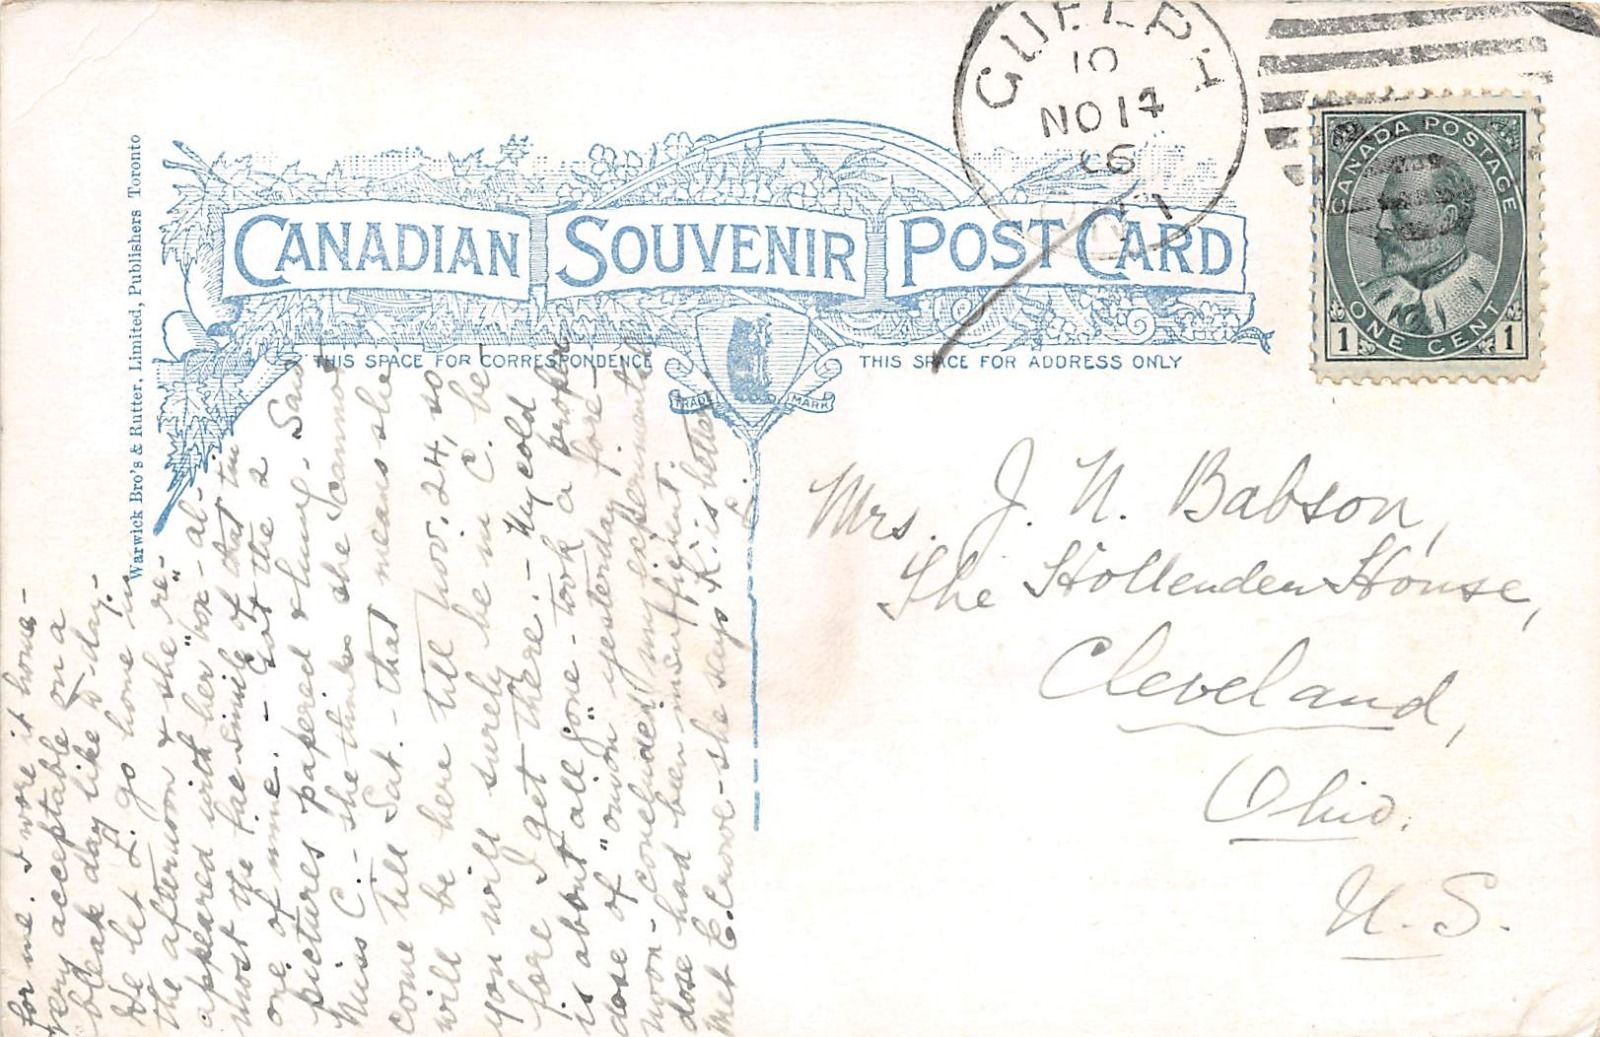 GUELPH
10
NO 14
06
CANADA POSTAGE
ONE CENT
1 1
CANADIAN SOUVENIR POST CARD
Warwick Bro's & Rutter, Limited, Publishers Toronto
THIS SPACE FOR CORRESPONDENCE
THIS SPACE FOR ADDRESS ONLY
TRADE MARK
for me. I wore it home -
very acceptable on a
bleak day like to-day.
He let L. go home in
the afternoon & she "re-
appeared with her "box" - al-
most the facsimile of that tin
one of mine. - Got the 2
pictures papered & hung. Saw
Miss C. - she thinks she cannot
come till Sat. - that means she
will be here till Nov. 24, so
you will surely be in C. be
fore I get there. - My cold
is about all "gone" - took a proper
dose of "onion" yesterday fore-
noon - concluded my experimental
dose had been insufficient.
Met E. Crowe - she says K. is better
Mrs. J. N. Babson,
The Hollenden House,
Cleveland,
Ohio.
U. S.